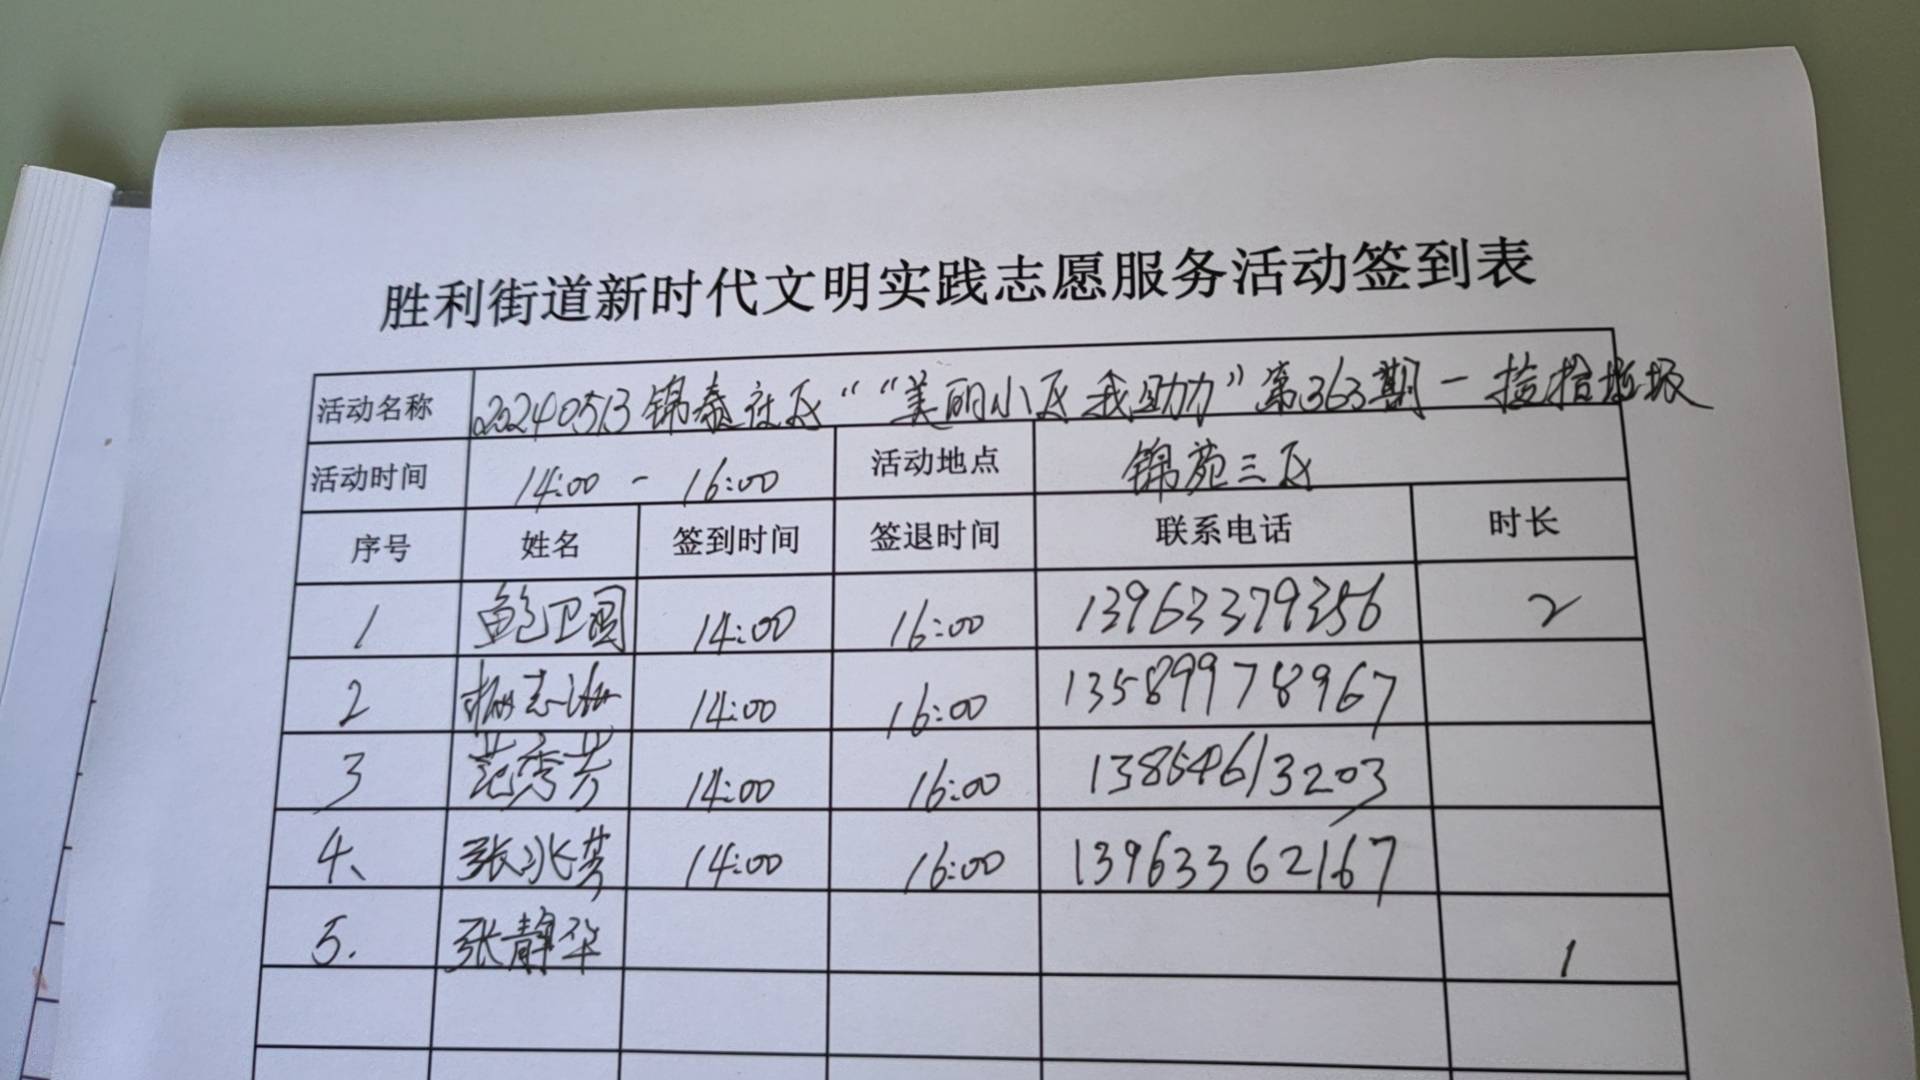 胜利街道新时代文明实践志愿服务活动签到表
活动名称 20240513锦泰社区““美丽小区我助力”第363期一捡拾垃圾
活动时间 14:00 - 16:00 活动地点 锦苑三区
序号 姓名 签到时间 签退时间 联系电话 时长
1 鲍卫国 14:00 16:00 13963379356 2
2 14:00 16:00 13589978967
3 范秀芳 14:00 16:00 13854613203
4、 张兆芳 14:00 16:00 13963362167
5. 张静华 1